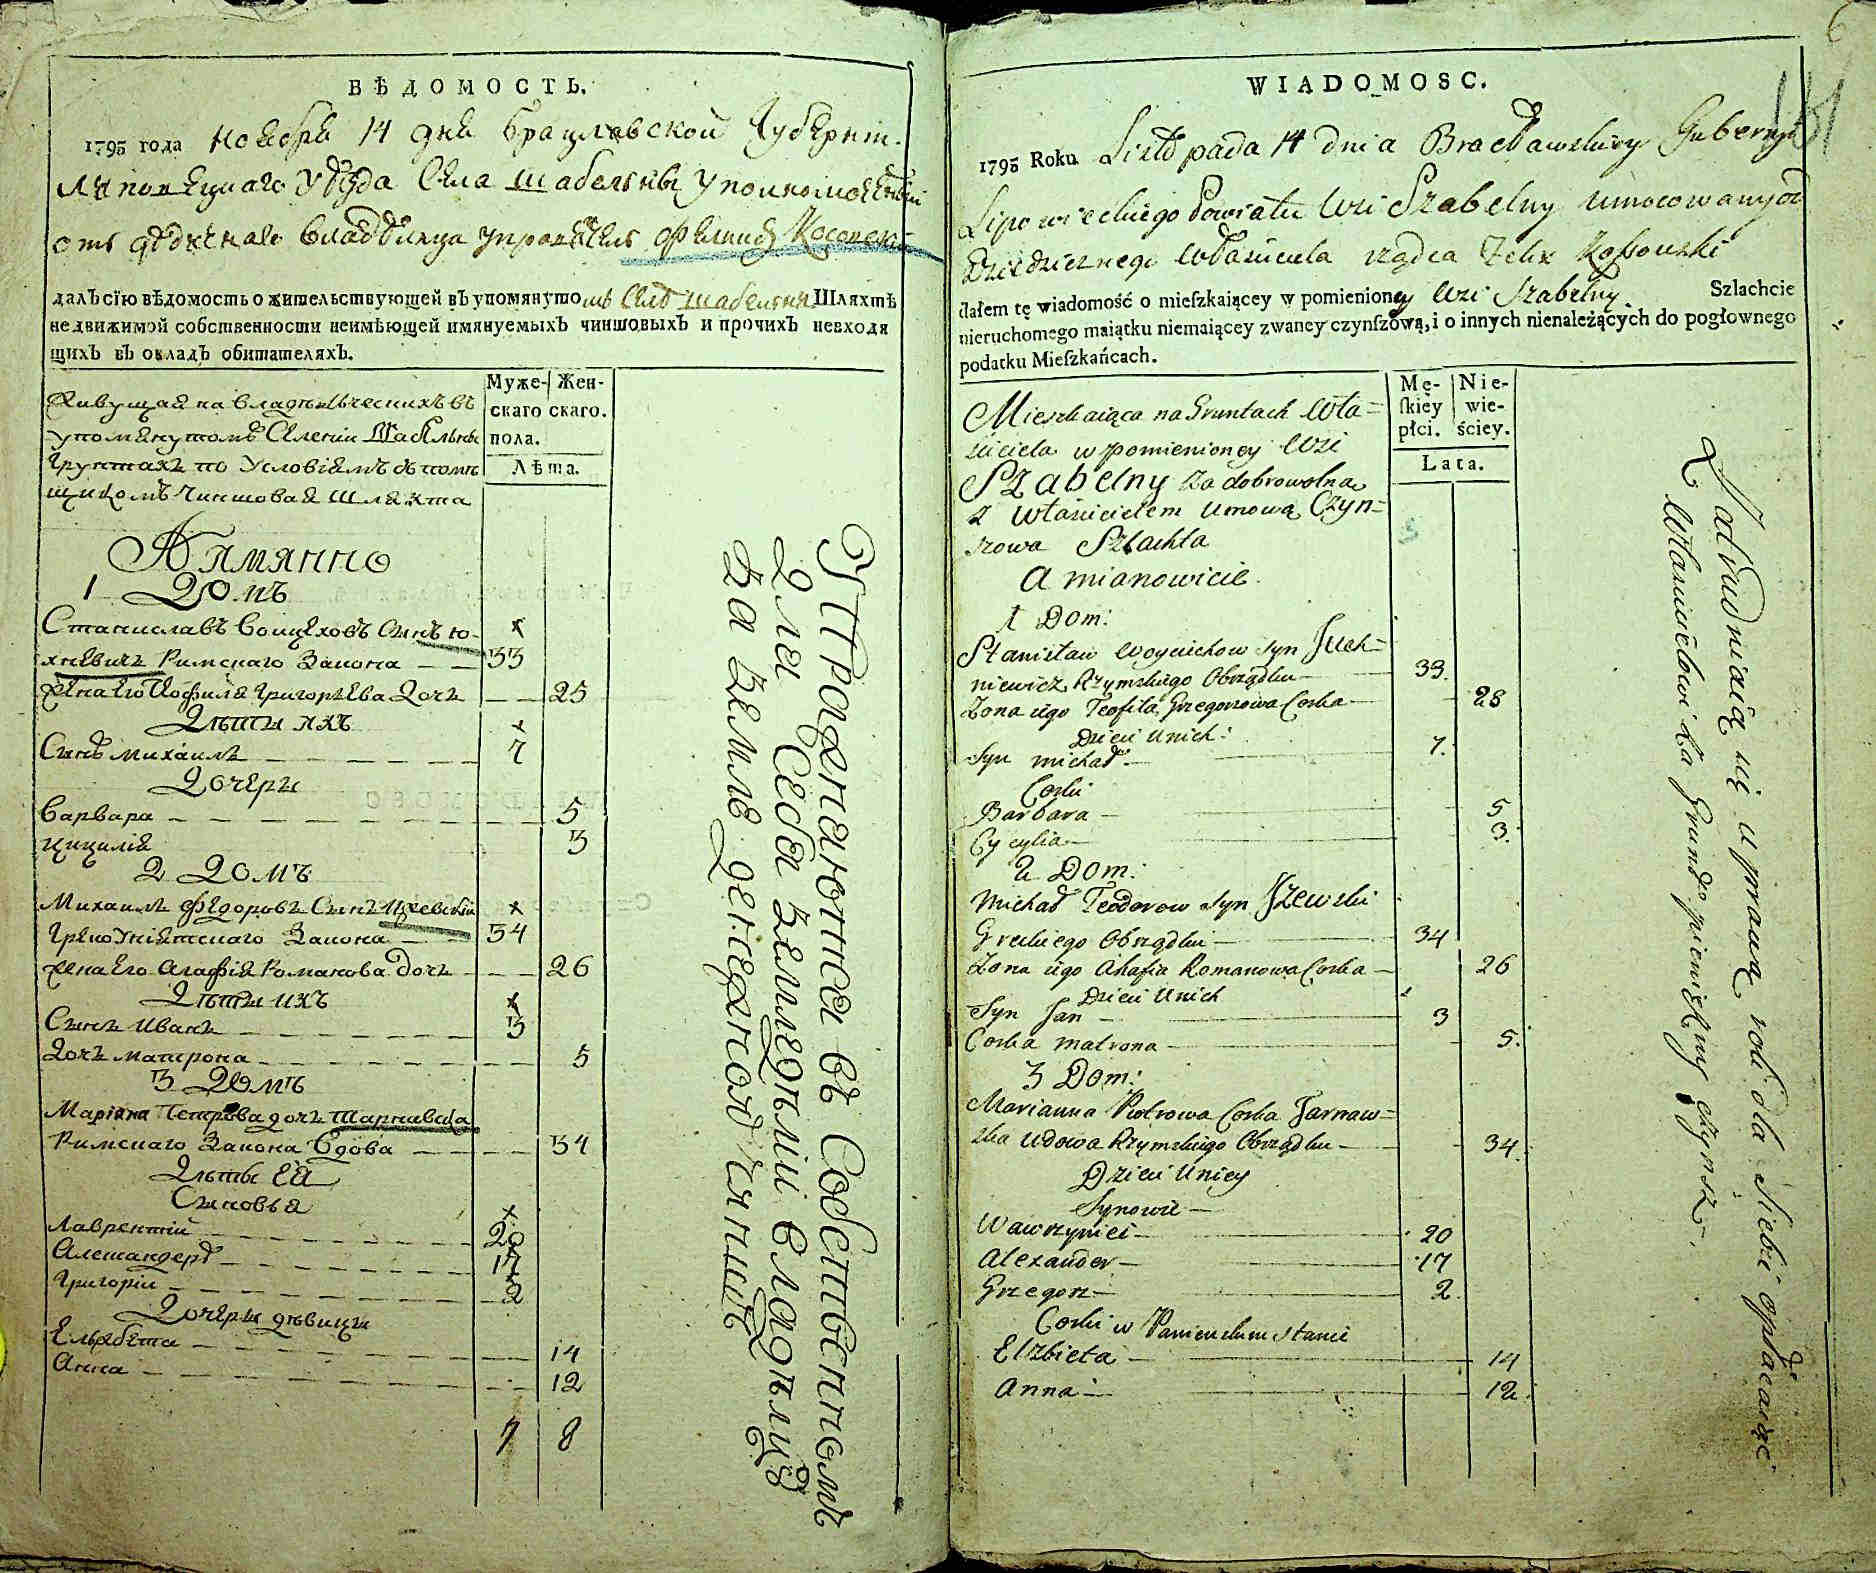 ВѢДОМОСТЬ.
1795 года Ноября 14 дня Брацлавской Губерніи
Липовецкаго уѣзда Села Шабельны уполномоченный
отъ дѣдичнаго владѣльца управитель Феликсъ Косовскій
далъ сїю вѣдомость о жительствующей въ упомянутомъ Селѣ Шабельни Шляхтѣ
недвижимой собственности неимѣющей имянуемыхъ чиншовыхъ и прочихъ невходя
щихъ въ окладъ обитателяхъ.
Муже- Жен-
скаго скаго.
пола.
Лѣта.
Живущая на владѣльческихъ въ
упомянутомъ Селеніи Шабельны
Грунтахъ по Условіямъ съ помѣ
щикомъ Чиншовая Шляхта
А Имянно
1 Домъ
Станиславъ Войцеховъ Сынъ Ю-
хневичъ Римскаго Закона — — 33
Жена его Теофиля Григорьева Дочь — — 25
Дѣти ихъ
Сынъ Михаилъ — — 7
Дочери
Варвара — — 5
Цицилія 3
2 Домъ
Михаилъ Федоровъ Сынъ
Греко Уніятскаго Закона — — 34
Жена его Агафія Романова Дочь — — 26
Дѣти ихъ
Сынъ Иванъ — — 3
Дочь Матрона — — 5
3 Домъ
Маріяна Петрова дочь Тарнавска
Римскаго Закона Вдова — — 34
Дѣты Ея
Сыновья
Лаврентій — — 20
Александеръ — — 17
Григорій — — 2
Дочери дѣвицы
Елжбета — — 14
Анна — — 12
7 8
Упражнаютса въ Собственномъ
Для Себя Земледѣліи Владѣлцу
За Землю денежной чиншъ
6
WIADOMOSC.
1795 Roku Listopada 14 dnia Bracławskiey Gubernyi
Lipowieckiego Powiatu Wsi Szabelny umocowany od
Dziedzicznego Właściciela rządca Felix Kossowski
dałem tę wiadomość o mieſzkaiącey w pomienioney Wsi Szabelny. Szlachcie
nieruchomego maiątku niemaiącey zwaney czynſzową, i o innych nienależących do pogłownego
podatku Mieſzkańcach.
Mę- Nie-
ſkiey wie-
płci. ściey.
Lata.
Mieszkaiąca na Gruntach Wła=
ściciela w pomienioney Wsi
Szabelny za dobrowolną
z Właścicielem umową Czyn=
szowa Szlachta
a mianowicie
1 Dom:
Stanisław Woyciechow syn Juch=
niewicz Rzymskiego Obrządku — 33.
Zona iego Teofila Grzegorzowa Corka — 28
Dzieci unich:
Syn michał — 7.
Corki
Barbara — 5
Cycylia — 3.
2 Dom:
Michał Teodorow syn
Greckiego Obrządku — 34
Zona iego Ahafia Romanowa Corka — 26
Dzieci unich
Syn Jan — 3
Corka matrona — 5.
3 Dom:
Marianna Piotrowa Corka Tarnaw=
ska Wdowa Rzymskiego Obrządku — 34.
Dzieci uniey
Synowie —
Wawrzyniec — 20
Alexander — 17
Grzegorz — 2.
Corki w Panieńskim stanie
Elzbieta — 14
Anna — 12.
Zatrudniaią się uprawą roli dla siebie opłacaiąc
Właścicielowi za Grunt pieniężny czynsz.